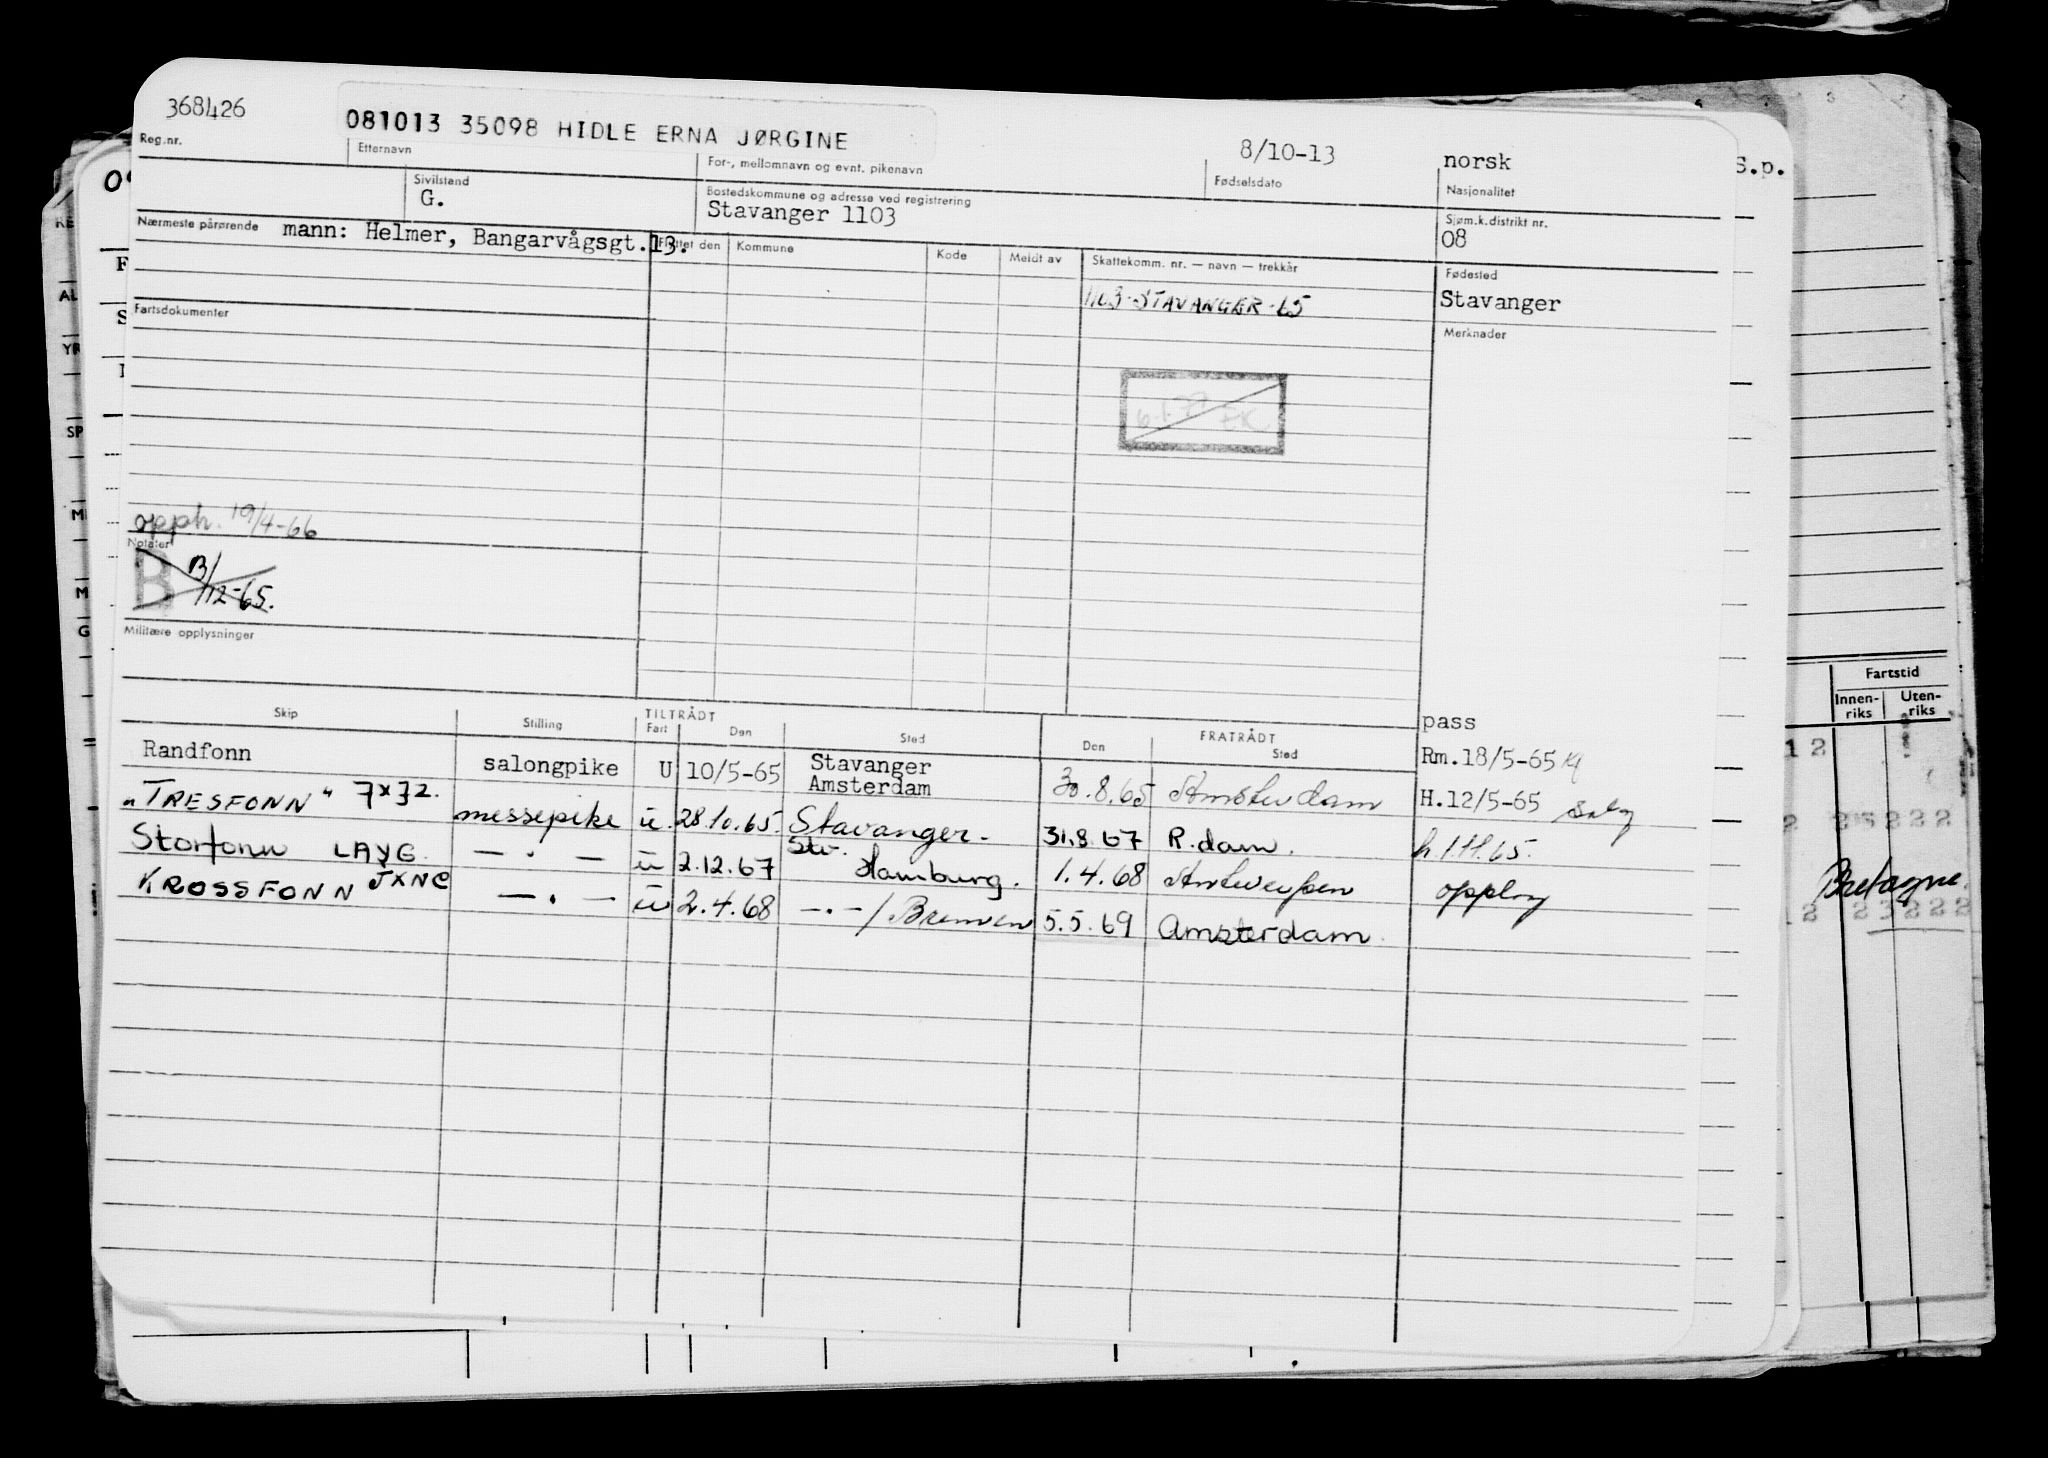 368426
081013 35098 HIDLE ERNA JØRGINE
8/10-13
norsk
S.p.
Reg.nr.
Etternavn
For-, mellomnavn og evnt. pikenavn
Fødselsdato
Nasjonalitet
Sivilstand
G.
Bostedskommune og adresse ved registrering
Stavanger 1103
Sjøm.k.distrikt nr.
08
Nærmeste pårørende mann: Helmer, Bangarvågsgt.13.
Flyttet den
Kommune
Kode
Meldt av
Skattekomm. nr. — navn — trekkår
Fødested
1103-STAVANGER-65
Stavanger
Fartsdokumenter
Merknader
6-1-77 EK
opph. 19/4-66
Notater
B B/12-65.
Militære opplysninger
Fartstid
Innen-riks Uten-riks
Skip
Stilling
TILTRÅDT
Fart Den
Sted
FRATRÅDT
Den Sted
pass
Randfonn salongpike U 10/5-65 Stavanger Amsterdam 30.8.65 Amsterdam Rm.18/5-65
H.12/5-65
"TRESFONN" JXJZ. messepike u. 28.10.65. Stavanger. 31.8.67 R.dam. h.1.11.65.
Storfonn LAYG — . — u 2.12.67 Stv. Hamburg. 1.4.68 Antwerpen
KROSSFONN JXNC — . — u 2.4.68 —.—/Bremen 5.5.69 Amsterdam.
Bretagne.